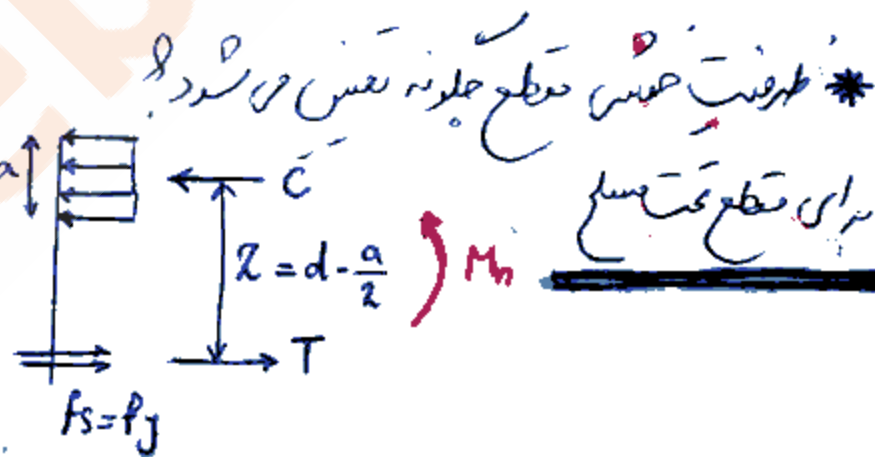 * ظرفیت خمشی مقطع چگونه تعیین می شود؟
برای مقطع تحت مسلح
a
C
Z = d - a/2
Mn
T
fs = fy